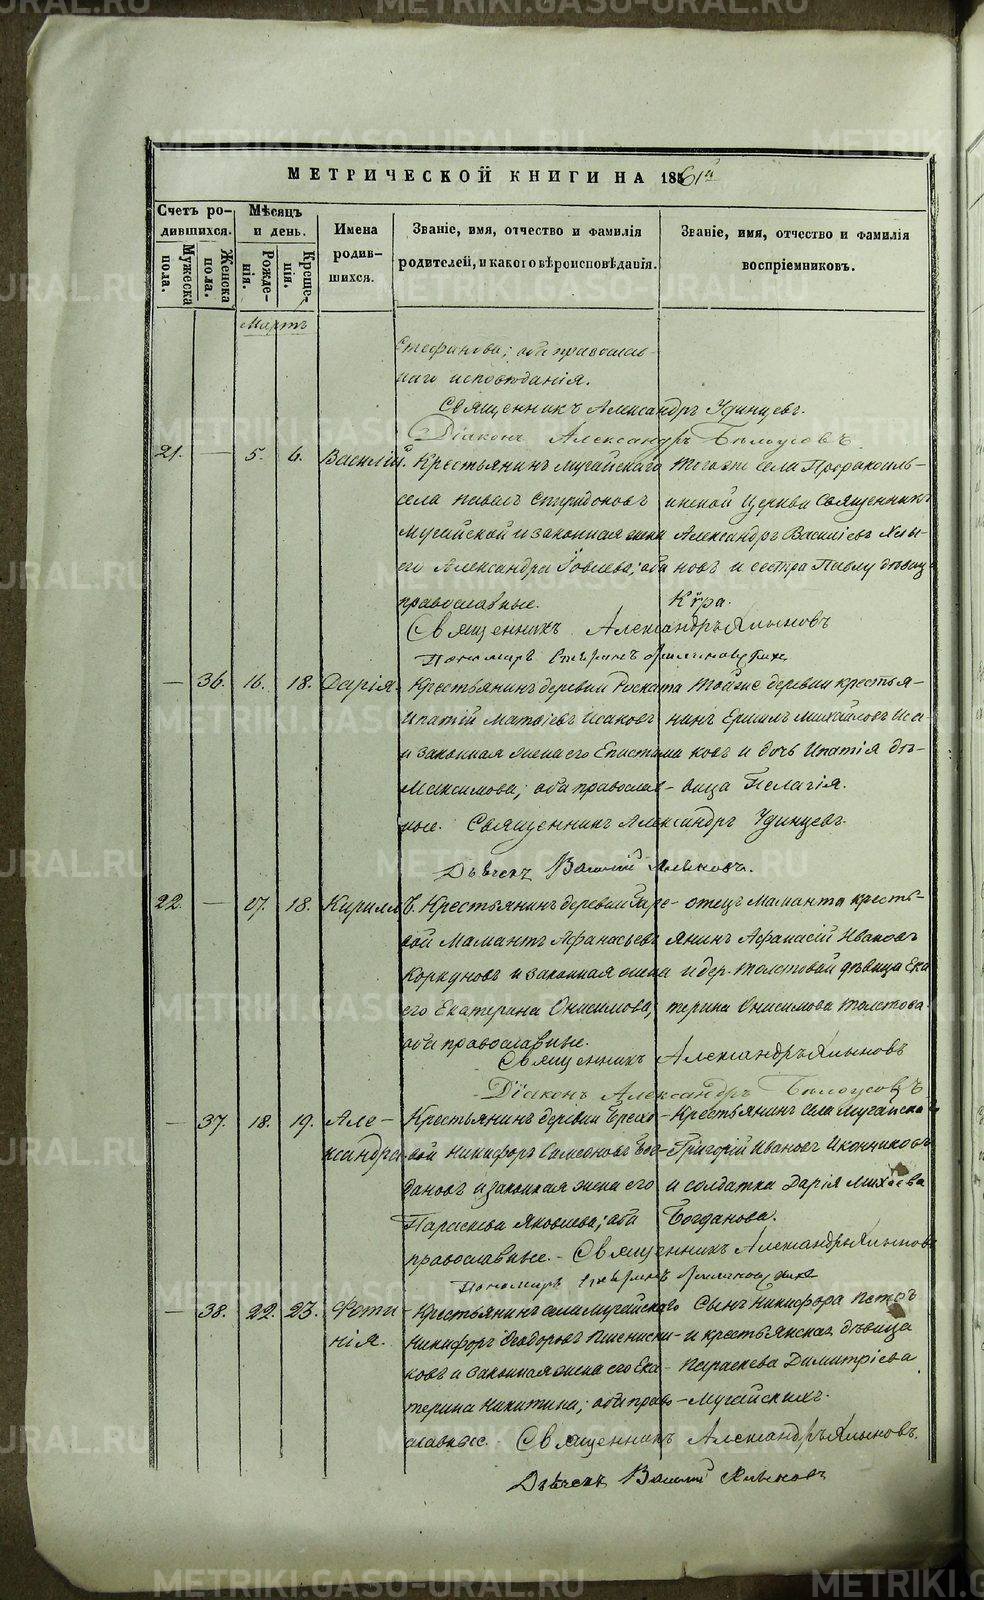 МЕТРИЧЕСКОЙ КНИГИ НА 1861й
Счетъ ро-
дившихся.
Мужеска
пола.
Женска
пола.
Мѣсяцъ
и день.
Рожде-
нія.
Креще-
нія.
Имена
родив-
шихся.
Званіе, имя, отчество и фамилія
родителей, и какого вѣроисповѣданія.
Званіе, имя, отчество и фамилія
воспріемниковъ.
Мартъ
Стефанова; оба православ-
наго исповѣданія.
Священникъ Александръ Удинцевъ.
Діаконъ Александръ Бѣлоусовъ
21. — 5. 6. Василій.
Крестьянинъ Мугайскаго
села Павелъ Спиридоновъ
Мугайской и законная жена
его Александра Іовлева; оба
православные.
Тогоже села Прокопіев-
ской Церкви Священникъ
Александръ Василіевъ Хлы-
новъ и сестра Павлу дѣвица
Кѵра.
Священникъ Александръ Хлыновъ
Пономарь
— 36. 16. 18. Дарія.
Крестьянинъ деревни Роската
Ипатій Матвіевъ Исаковъ
и законная жена его Епистима
Максимова; оба православ-
ные.
Тойже деревни крестья-
нинъ Ермилъ Михайловъ Иса-
ковъ и дочь Ипатія дѣ-
вица Пелагія.
Священникъ Александръ Удинцевъ.
Дьячекъ Василій Хлыновъ.
22. — 17. 18. Кириллъ.
Крестьянинъ деревни Горе-
вой Мамантъ Афанасьевъ
Коркуновъ и законная жена
его Екатерина Онисимова,
оба православные.
отецъ Маманта кресть-
янинъ Афанасій Ивановъ
и дер. Толстовой дѣвица Ека
терина Онисимова Толстова.
Священникъ Александръ Хлыновъ
Діаконъ Александръ Бѣлоусовъ
— 37. 18. 19. Але-
ксандра
Крестьянинъ деревни Бресхо-
вой Никифоръ Симеоновъ Бог-
дановъ и законная жена его
Параскева Яковлева; оба
православные.
Крестьянинъ села Мугайска
Григорій Ивановъ Иконниковъ
и солдатка Дарія Михеева
Богданова.
Священникъ Александръ Хлыновъ
Пономарь
— 38. 22. 23. Фоти
нія.
Крестьянинъ села Мугайскаго
Никифоръ Ѳеодоровъ Пшеницни-
ковъ и законная жена его Ека-
терина Никитина; оба право-
славные.
Сынъ Никифора Петръ
и крестьянская дѣвица
Параскева Димитріева
Мугайскихъ.
Священникъ Александръ Хлыновъ.
Дьячекъ Василій Хлыновъ
METRIKI.GASO-URAL.RU